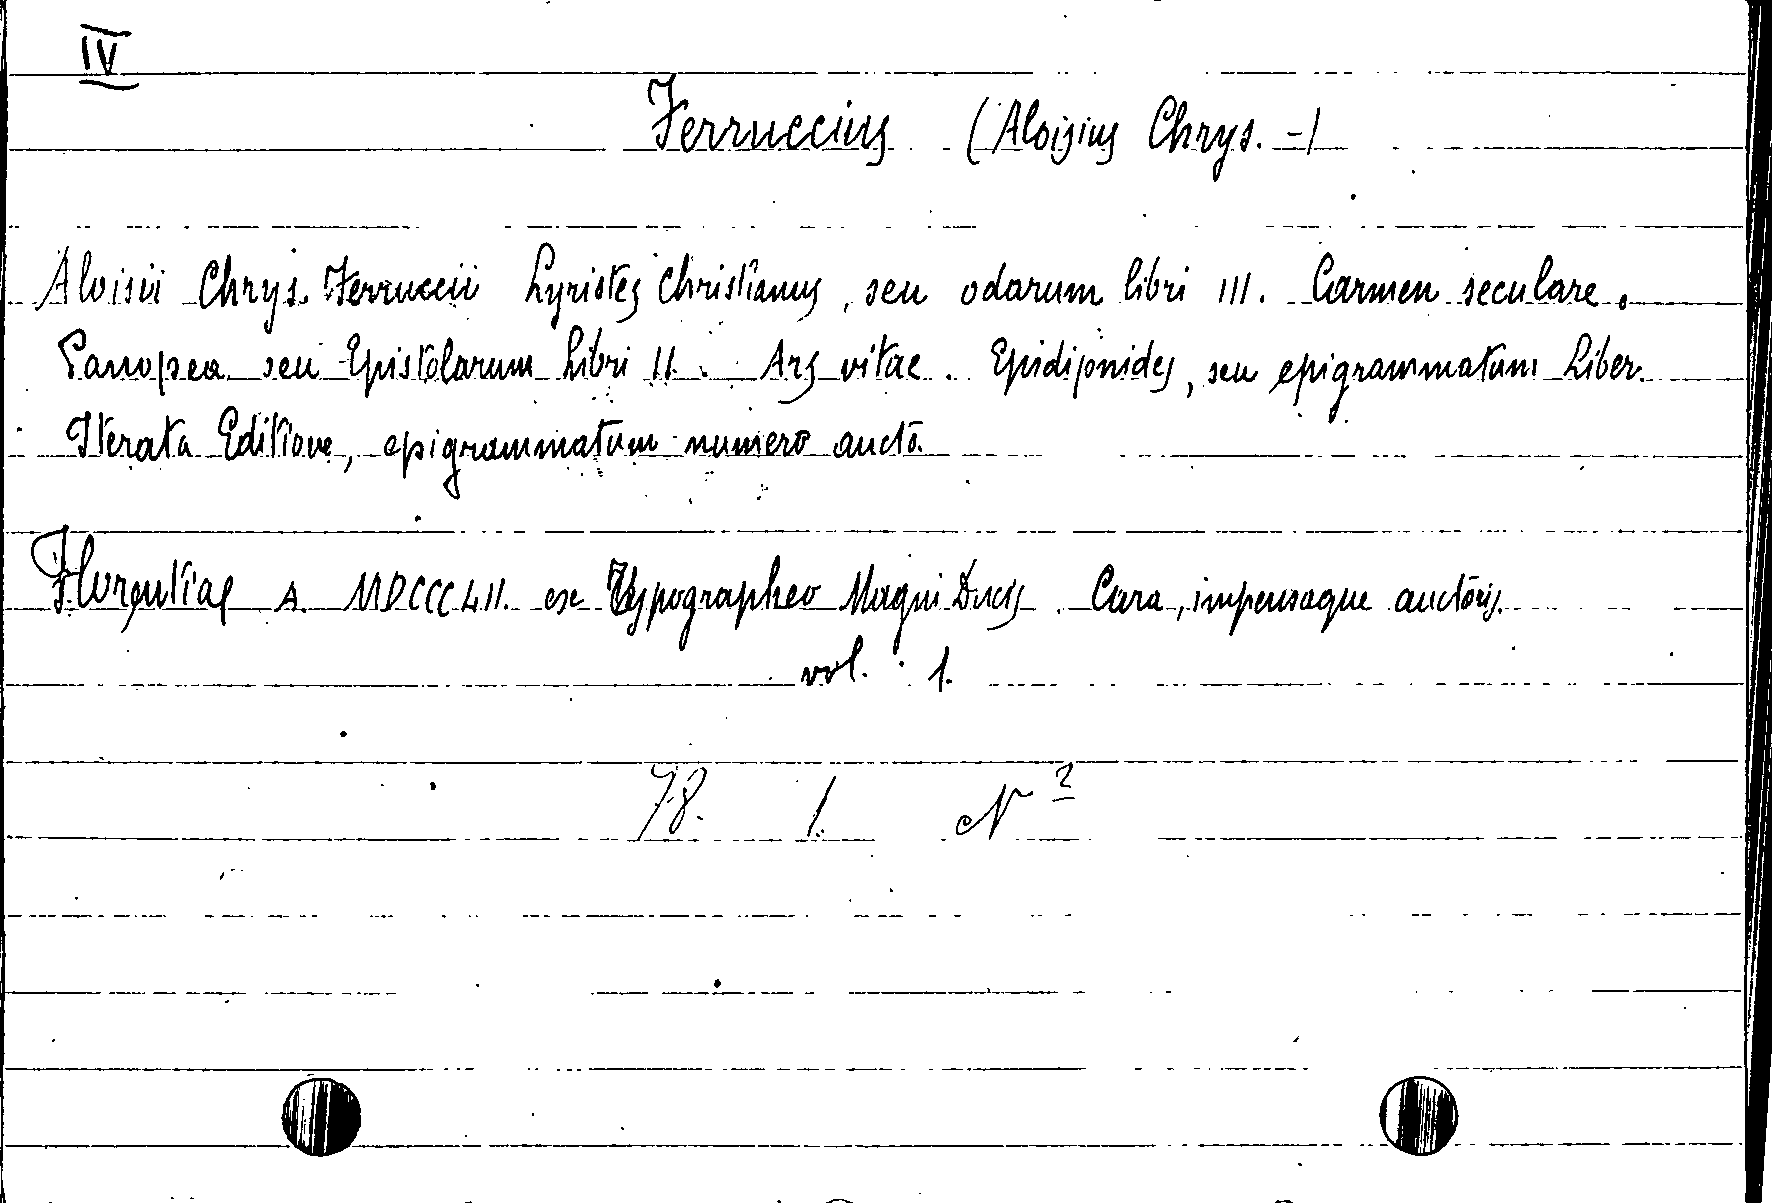 IV
Ferruccius (Aloisius Chrys. -)
Aloisii Chrys. Ferruccii Lyristes Christianus, seu odarum libri III. Carmen seculare.
seu Epistolarum Libri II. Ars vitae. seu epigrammatum Liber.
Iterata Editione, epigrammatum numero aucto.
Florentiae A. MDCCCLII. ex Typographeo Magni Ducis. Cura, impensaque auctoris.
vol. 1.
78. 1. N 2